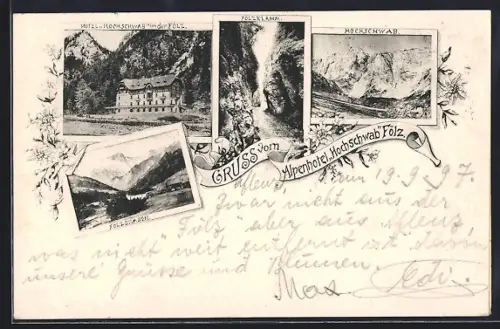 HOTEL „HOCHSCHWAB" in der FÖLZ.
FÖLZKLAMM.
HOCHSCHWAB.
GRUSS vom
Alpenhotel „Hochschwab" Fölz.
FÖLZ
Aflenz, 19.9.97.
Zwar nicht aus der
„Fölz" aber aus Aflenz,
was nicht weit entfernt ist davon
unsere Grüsse und Blumen.
Max. Edi.